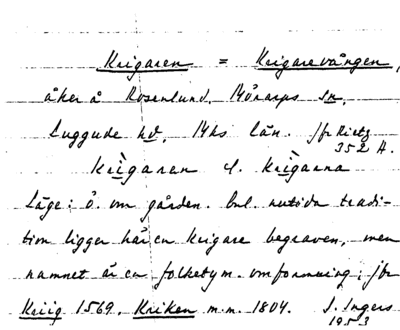 Krigaren = Krigarevången,
åker å Rosenlund. Mörarps sn.
Luggude hd, Mhs län. Jfr Rietz
352 A.
Krìgaren l. Krìgarna
Läge: ö. om gården. Enl. nutida tradi-
tion ligger här en krigare begraven, men
namnet är en folketym. omformning; jfr
Kriig 1569, Kriken m.m. 1804. I. Ingers
1953